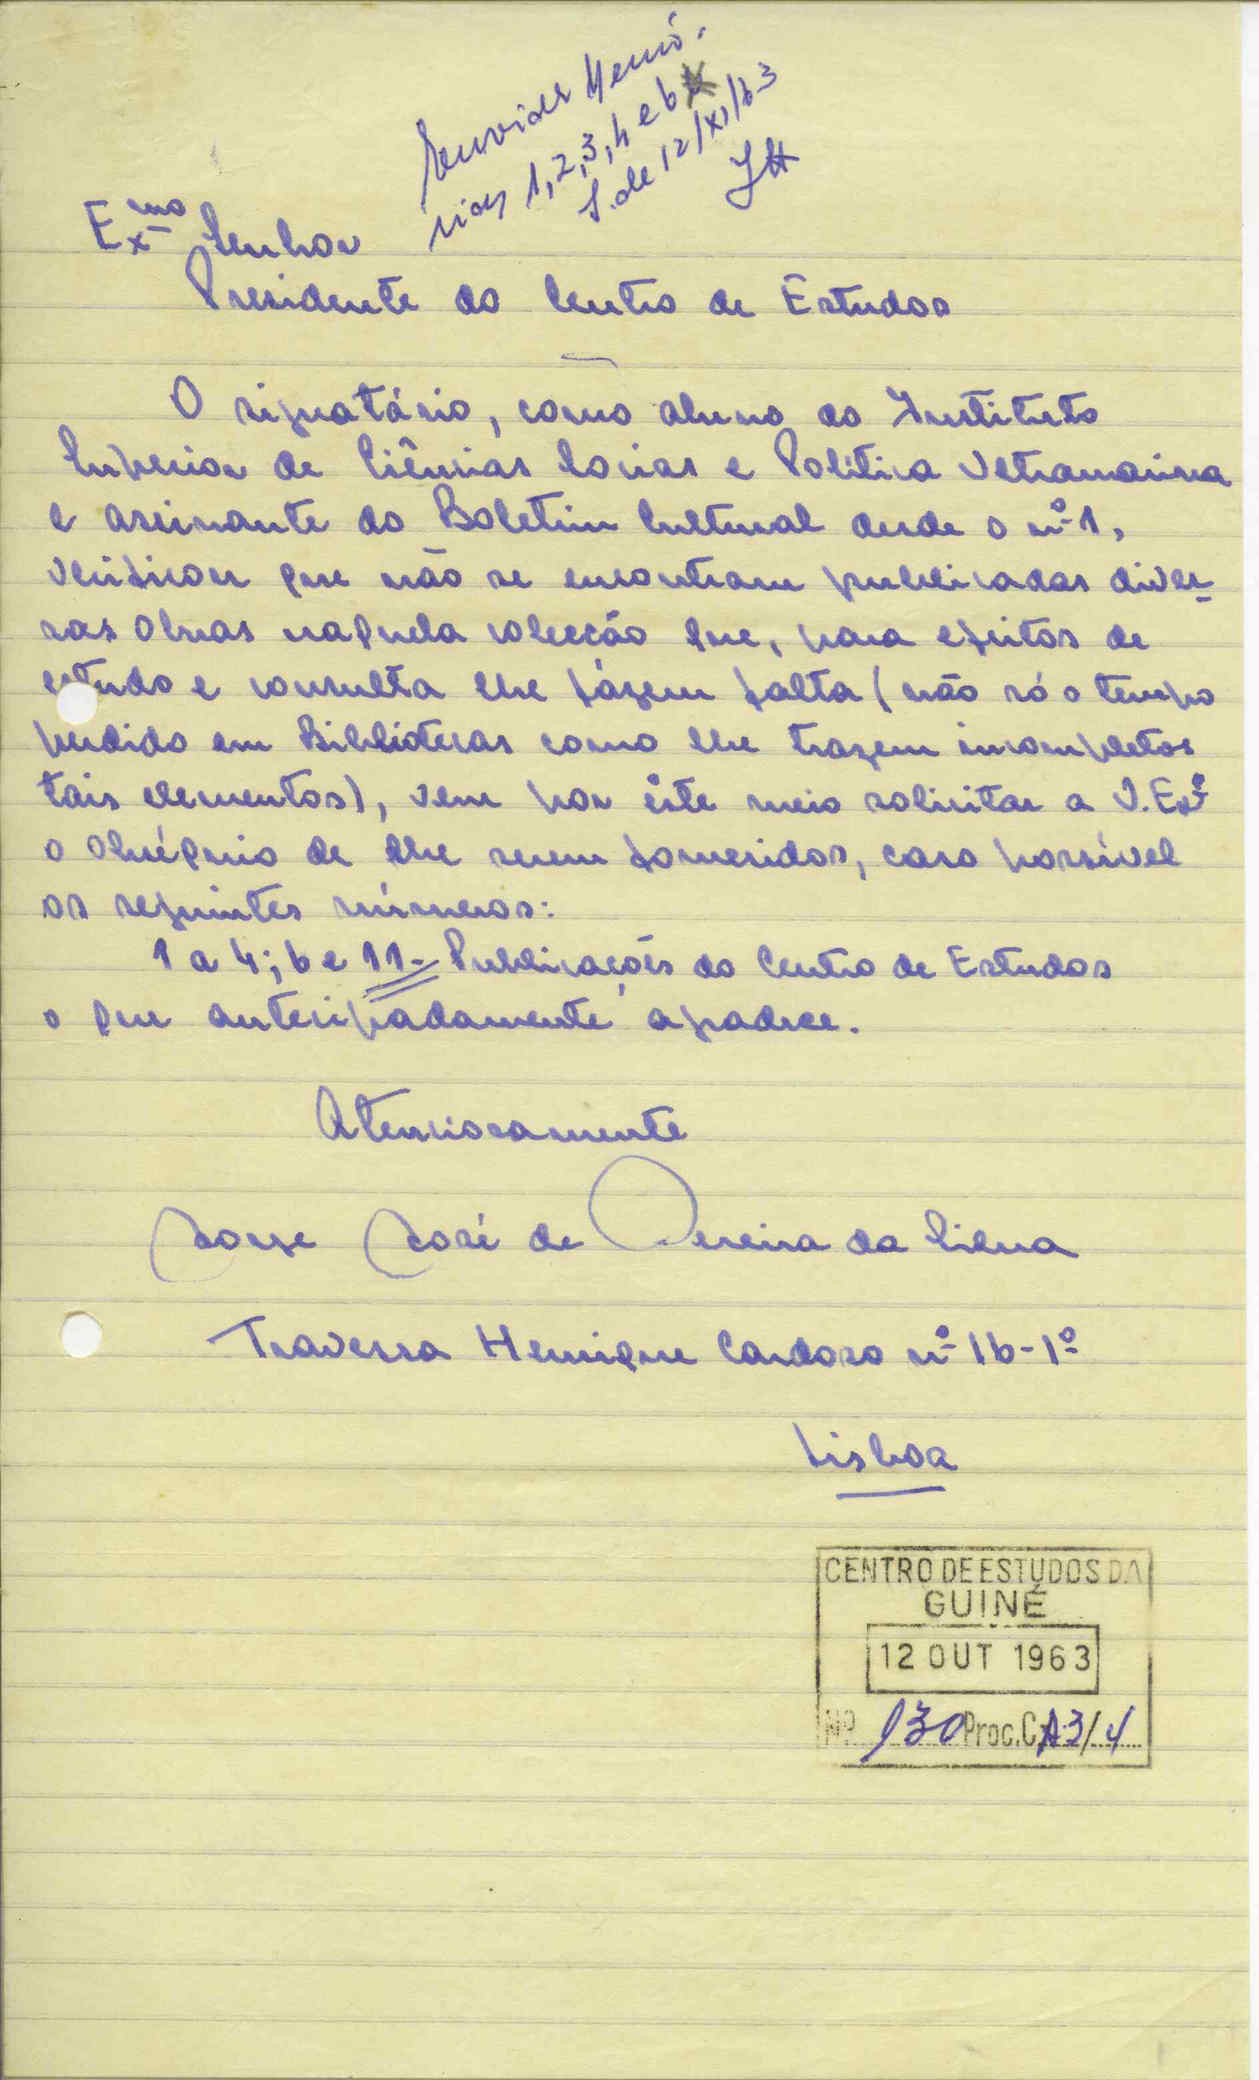 Enviadas Memó-
rias 1, 2, 3, 4 e 6
S. de 12/XI/63
Exmo Senhor
Presidente do Centro de Estudos
O signatário, como aluno do Instituto
Superior de Ciências Socias e Politica Ultramarina
e assinante do Boletim Cultural desde o nº 1,
verificou que não se encontram publicadas diver-
sas obras naquela colecção que, para efeitos de
estudo e consulta lhe fázem falta (não só o tempo
perdido em Bibliotecas como lhe trazem incompletos
tais elementos), vem por êste meio solicitar a V. Exª
o obséquio de lhe serem fornecidos, caso possível
os seguintes números:
1 a 4; 6 e 11 - Publicações do Centro de Estudos
o que antecipadamente agradece.
Atenciosamente
Jorge José de Pereira da Silva
Travessa Henrique Cardoso nº 16-1º
Lisboa
CENTRO DE ESTUDOS DA
GUINÉ
12 OUT 1963
Nº 130 Proc. C A-3/4